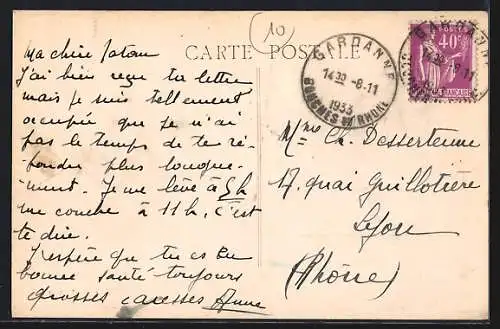 10
CARTE POSTALE
GARDANNE
14 30 -8-11
1933
BOUCHES DU RHONE
POSTES
40c
GARDANNE
14 30 -8-11
Ma chère
J'ai bien reçu ta lettre
mais je suis tellement
occupée que je n'ai
pas le temps de te ré-
pondre plus longue-
ment. Je me lève à 5 h
me couche à 11 h, c'est
te dire.
J'espère que tu es en
bonne santé toujours
grosses caresses Anna
Mme Ch. Desserteune
17, quai Guillotière
Lyon
(Rhône)